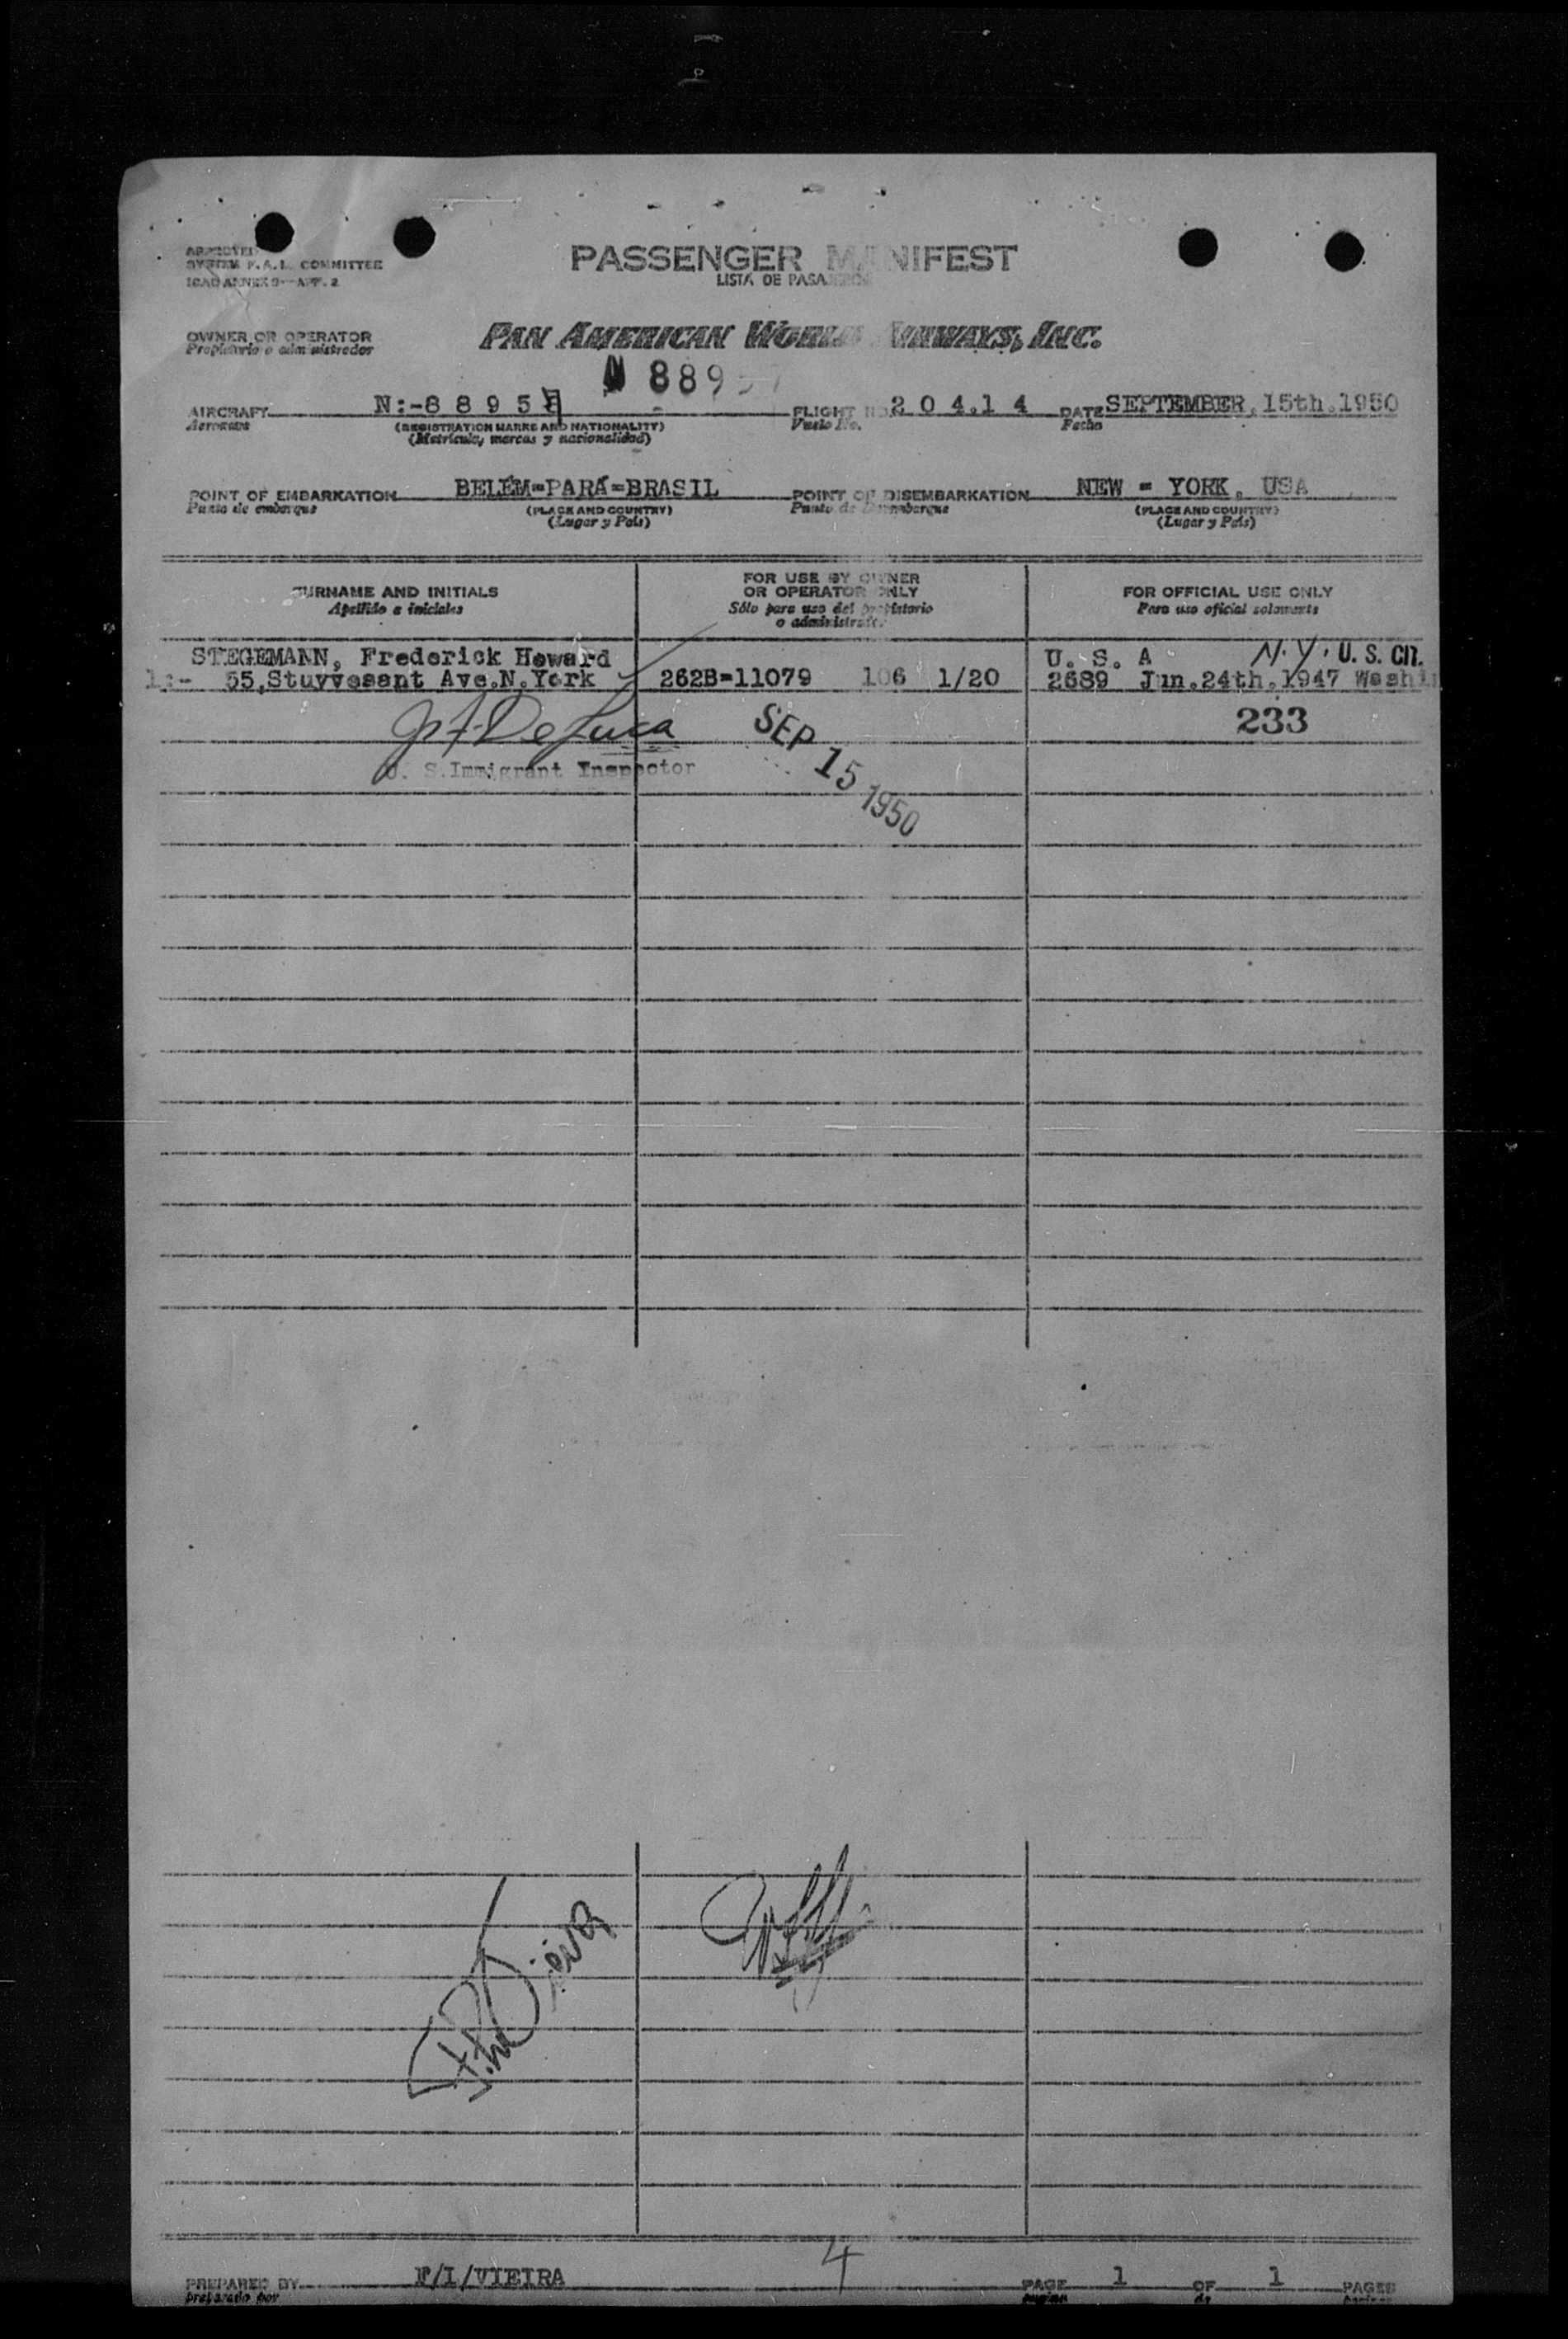 APPROVED
SYSTEM F.A.L. COMMITTEE
ICAO ANNEX 9--APP. 2
PASSENGER MANIFEST
LISTA DE PASA
OWNER OR OPERATOR
Propietario o administrador
PAN AMERICAN WORLD AIRWAYS, INC.
N 8895
AIRCRAFT N:-8895 FLIGHT NO 204.14 DATE SEPTEMBER, 15th.1950
Aeronave (REGISTRATION MARKS AND NATIONALITY) Vuelo No. Fecha
(Matrícula, marcas y nacionalidad)
POINT OF EMBARKATION BELÉM=PARÁ=BRASIL POINT OF DISEMBARKATION NEW = YORK, USA
Punto de embarque (PLACE AND COUNTRY) Punto de Desembarque (PLACE AND COUNTRY)
(Lugar y País) (Lugar y País)
SURNAME AND INITIALS
Apellido e iniciales
FOR USE BY OWNER
OR OPERATOR ONLY
Sólo para uso del propietario
o administrador
FOR OFFICIAL USE ONLY
Para uso oficial solamente
STEGEMANN, Frederick Howard U. S. A N.Y. U.S. CIT.
1:- 55,Stuyvesant Ave.N.York 262B=11079 106 1/20 2689 Jun.24th.1947 Washi
De Luca
233
SEP 15 1950
U. S. Immigrant Inspector
Vieira
4
PREPARED BY F/I/VIEIRA PAGE 1 OF 1 PAGES
preparado por pagina de paginas